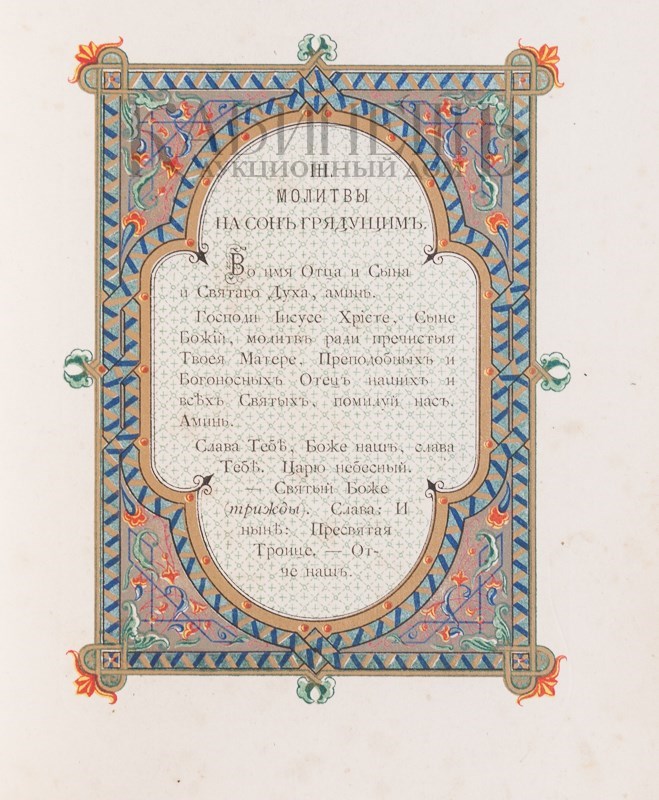 КАБИНЕТЪ
АУКЦИОННЫЙ ДОМ
III.
МОЛИТВЫ
НА СОНЪ ГРЯДУЩИМЪ.
Во имя Отца и Сына
и Святаго Духа, аминь.
Господи Іисусе Хрісте, Сыне
Божій, молитвъ ради пречистыя
Твоея Матере, Преподобныхъ и
Богоносныхъ Отецъ нашихъ и
всѣхъ Святыхъ, помилуй насъ.
Аминь.
Слава Тебѣ, Боже нашъ, слава
Тебѣ. Царю небесный.
— Святый Боже
(трижды). Слава: И
нынѣ: Пресвятая
Троице. — От-
че нашъ.